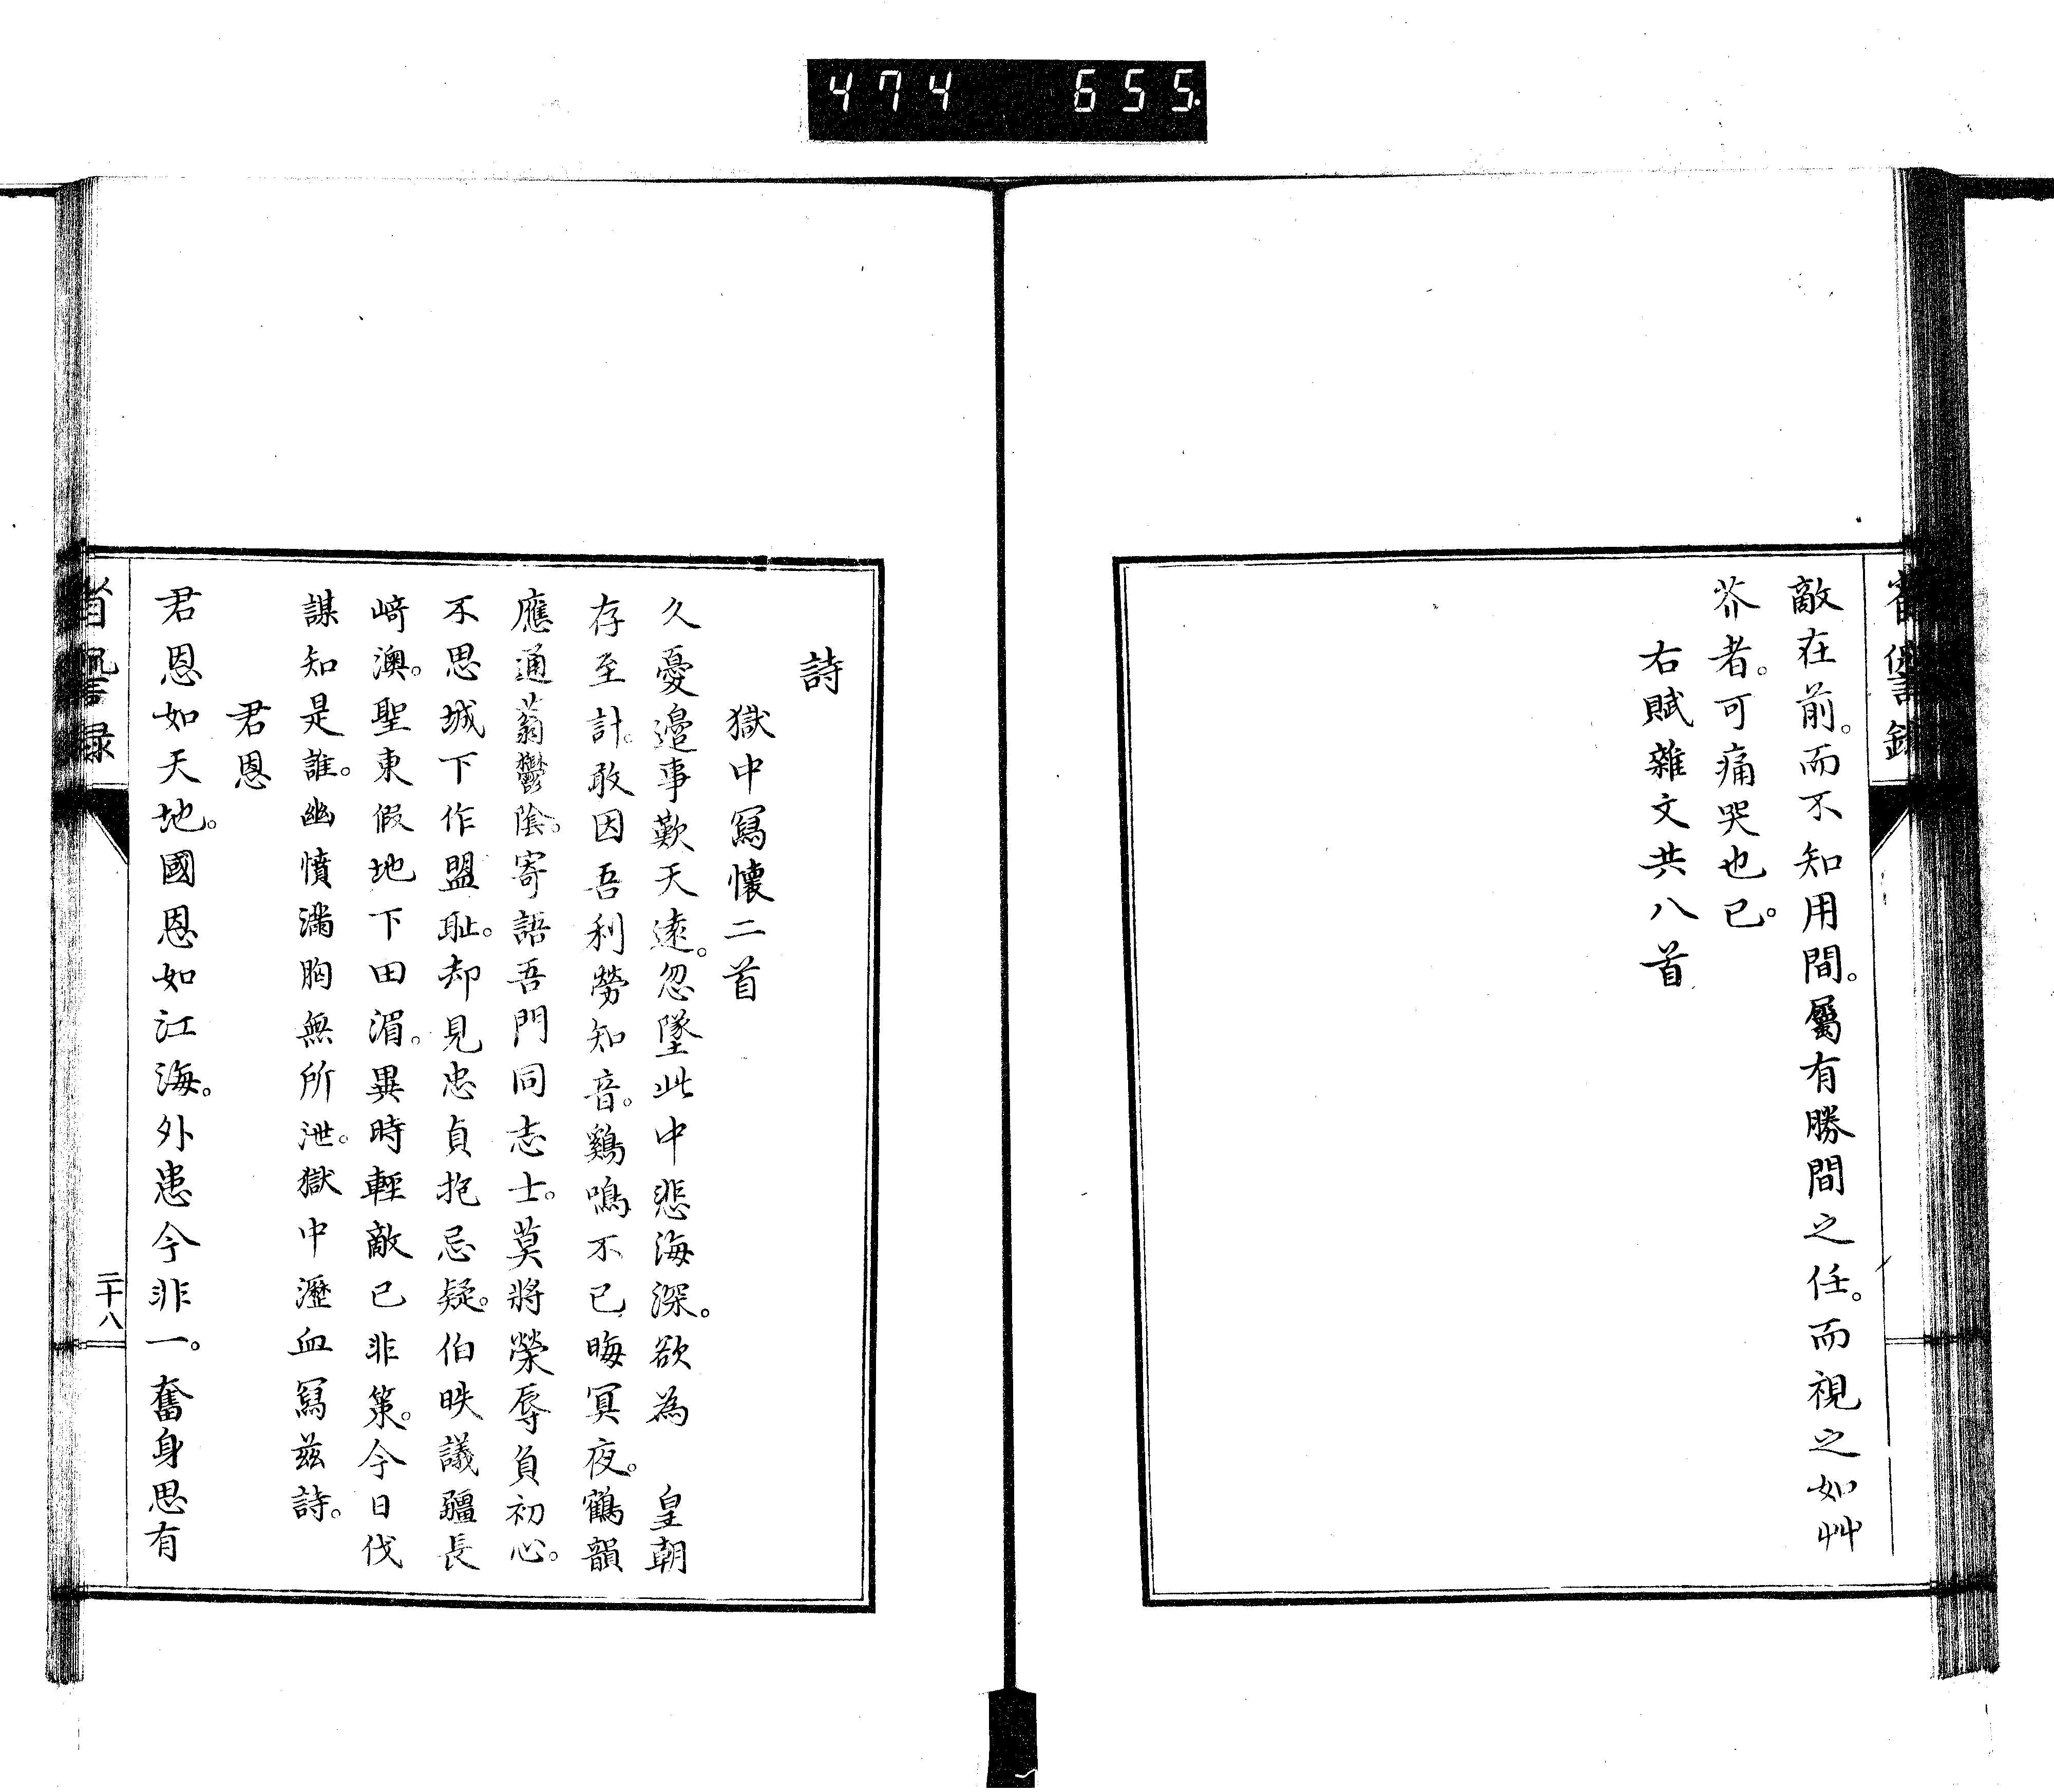 474 655
敵在前。而不知用間。屬有勝間之任。而視之如艸
芥者。可痛哭也已。
右賦雜文共八首
詩
獄中寫懷二首
久憂邉事歎天遠。忽墜此中悲海深。欲為　皇朝
存至計。敢因吾利勞知音。鷄鳴不已晦冥夜。鶴韻
應通蓊鬱陰。寄語吾門同志士。莫將榮辱負初心。
不思城下作盟耻。却見忠貞抱忌疑。伯昳議疆長
﨑澳。聖東假地下田湄。異時輕敵已非策。今日伐
謀知是誰。幽憤滿胸無所泄。獄中瀝血寫茲詩。
君恩
君恩如天地。國恩如江海。外患今非一。奮身思有
省諐録
二十八